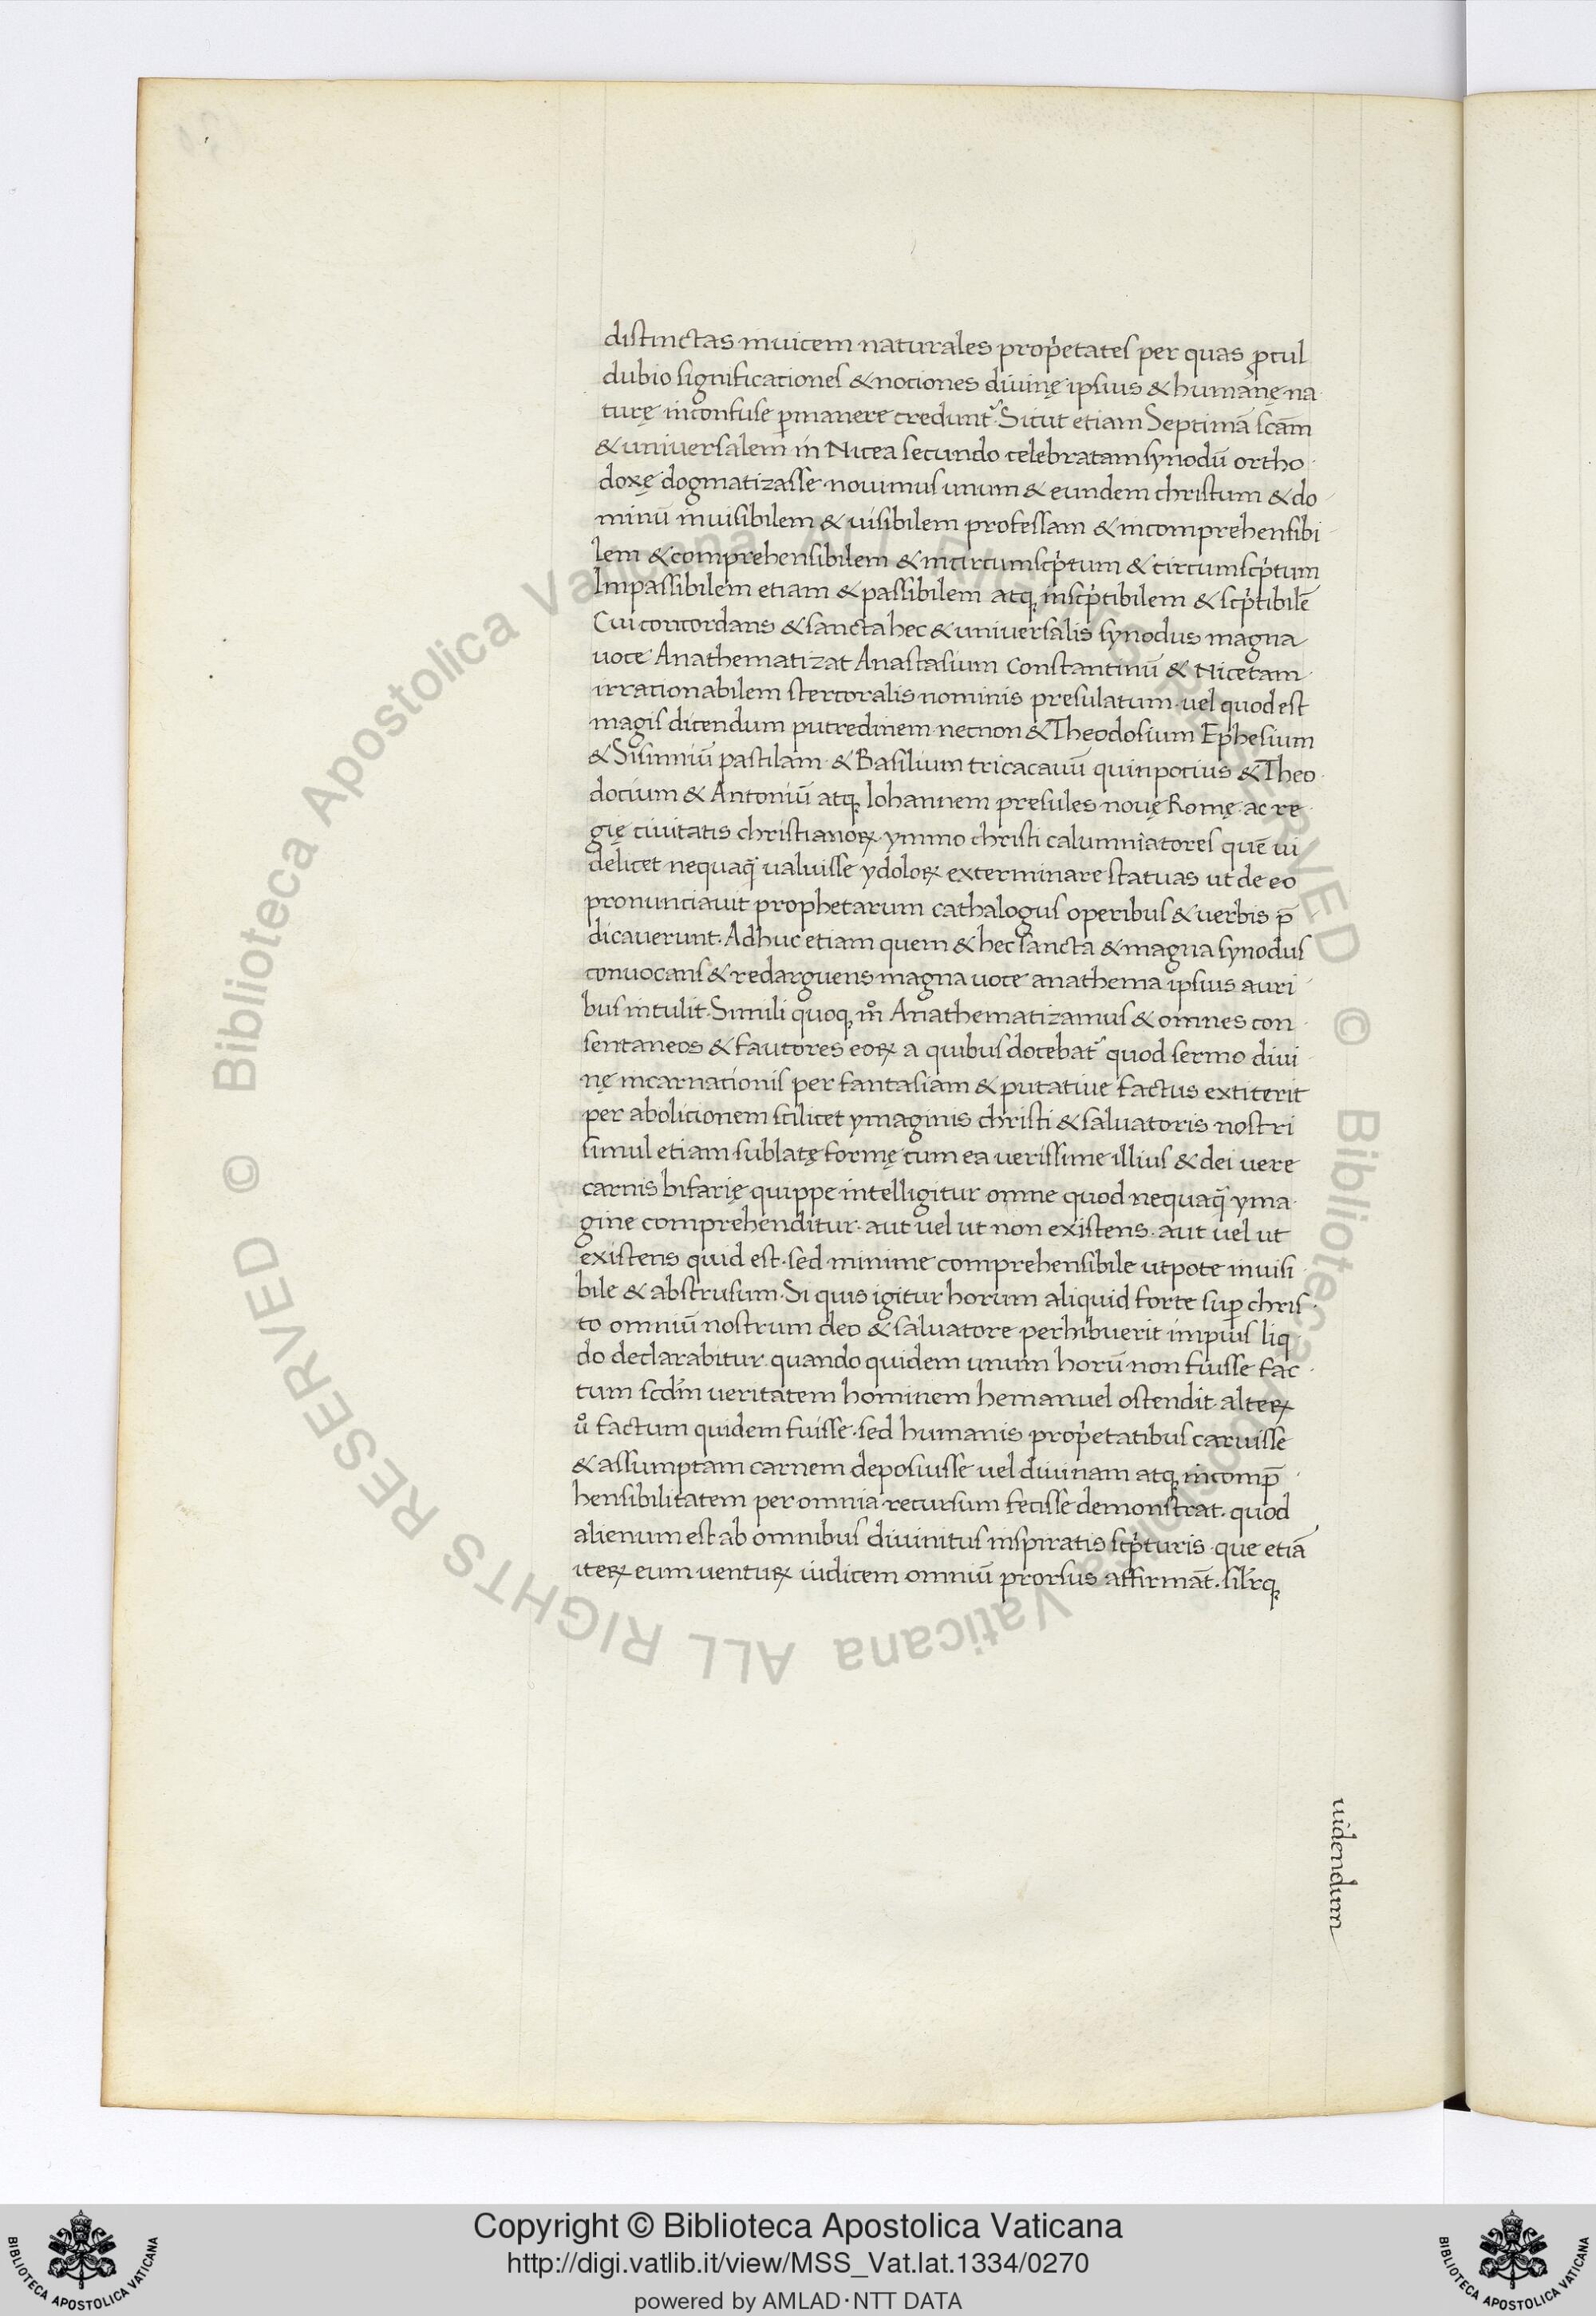 distinctas inuicem naturales prop̍etates per quas ꝓcul
dubio significationes & nociones diuinę ipsius & humanę na
turę inconfuse ꝑmanere credunt᷑ Sicut etiam Septimā scām
& uniuersalem in Nicea secundo celebratam synodū ortho
doxę dogmatizasse nouimus unum & eundem christum & do
minū inuisibilem & uisibilem professam & incomprehensibi
lem & comprehensibilem & incircumscp̍tum & circumscp̍tum
Impassibilem etiam & passibilem atq; inscp̍tibilem & scp̍tibilē
Cui concordans & sancta hec & uniuersalis synodus magna
uoce Anathematizat Anastasium Constantinū & Nicetam
irrationabilem stercoralis nominis presulatum uel quod est
magis dicendum putredinem necnon & Theodosium Ephesium
& Sisinniū pastilam & Basilium tricacauū quinpocius & Theo
docium & Antoniū atq; Iohannem presules nouę Romę ac re
gię ciuitatis christianoꝝ ymmo christi calumniatores quē ui
delicet nequaq̄ ualuisse ydoloꝝ exterminare statuas ut de eo
pronunciauit prophetarum cathalogus operibus & uerbis p̄
dicauerunt. Adhuc etiam quem & hec sancta & magna synodus
conuocans & redarguens magna uoce anathema ipsius auri
bus intulit. Simili quoq; mͦ Anathematizamus & omnes con
sentaneos & fautores eoꝝ a quibus docebat᷑ quod sermo diui
nę incarnationis per fantasiam & putatiue factus extiterit
per abolicionem scilicet ymaginis christi & saluatoris nostri
simul etiam sublatę formę cum ea uerissime illius & dei uere
carnis bifarię quippe intelligitur omne quod nequaq̄ yma
gine comprehenditur. aut uel ut non existens. aut uel ut
existens quid est. sed minime comprehensibile utpote inuisi
bile & abstrusum. Si quis igitur horum aliquid forte suꝑ chris
to omniū nostrum deo & saluatore perhibuerit impius liq
do declarabitur quando quidem unum horū non fuisse fac
tum scdm̄ ueritatem hominem hemanuel ostendit. alteꝝ
uͦ factum quidem fuisse. sed humanis prop̍etatibus caruisse
& assumptam carnem deposuisse uel diuinam atq; incomp̄
hensibilitatem per omnia recursum fecisse demonstrat. quod
alienum est ab omnibus diuinitus inspiratis scp̍turis que etiā
iteꝝ eum uentuꝝ iudicem omniū prorsus affirmāt. silr̄q;
uidendum
© Biblioteca Apostolica Vaticana ALL RIGHTS RESERVED © Biblioteca Apostolica Vaticana ALL RIGHTS RESERVED
BIBLIOTECA APOSTOLICA VATICANA
Copyright © Biblioteca Apostolica Vaticana
http://digi.vatlib.it/view/MSS_Vat.lat.1334/0270
powered by AMLAD·NTT DATA
BIBLIOTECA APOSTOLICA VATICANA